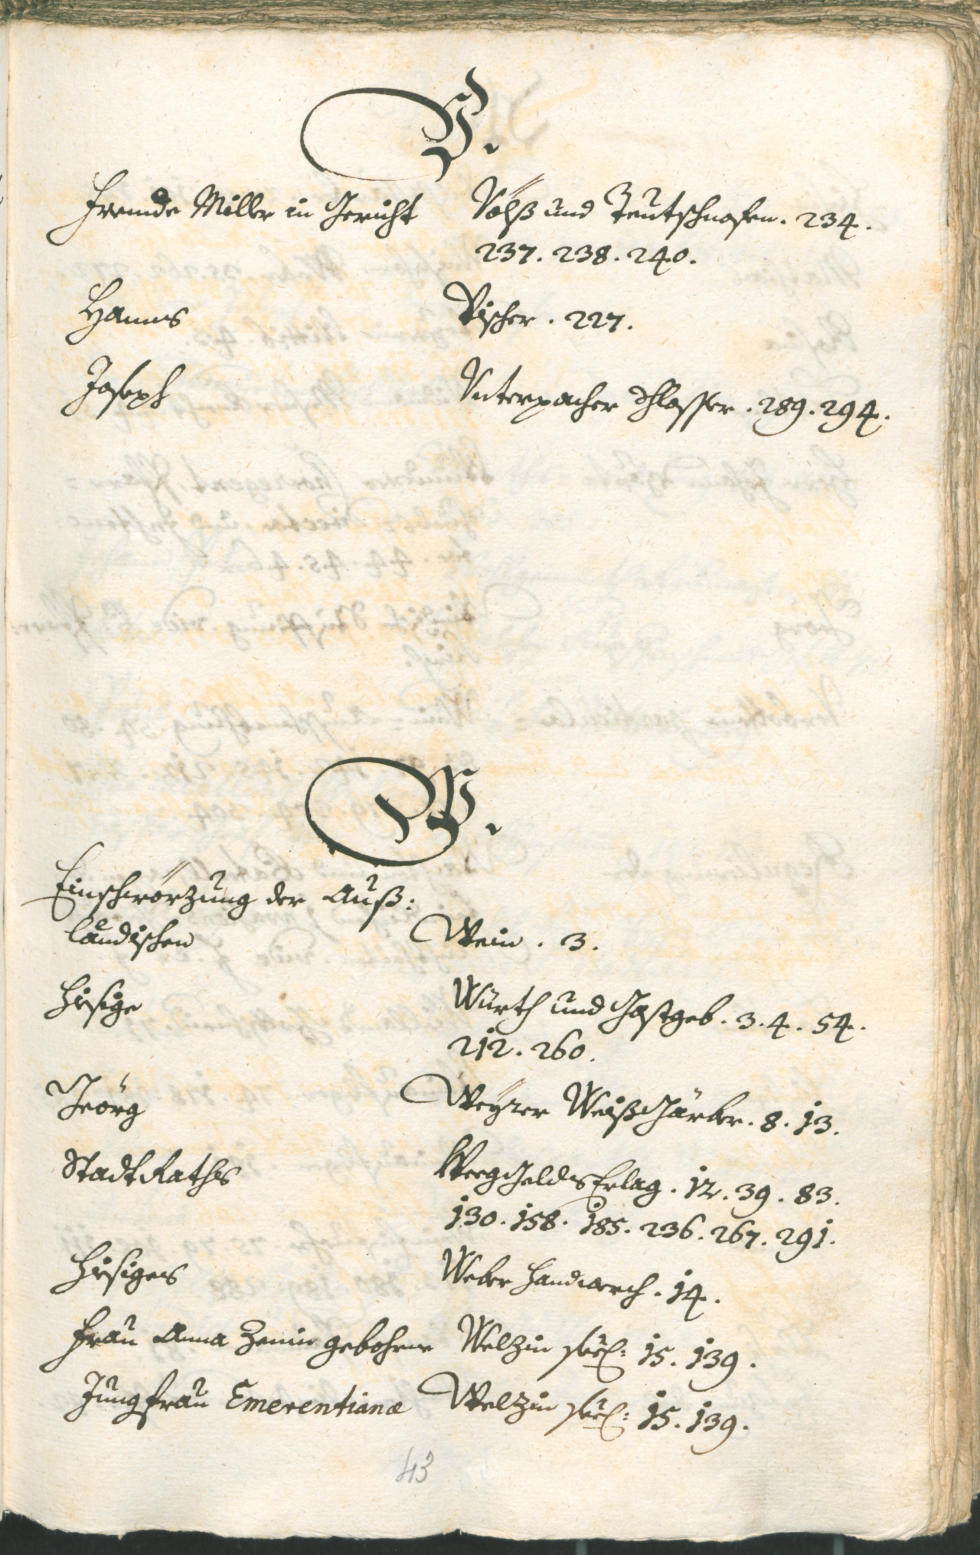 V.
Fremde Müller in Gericht Völß und Teutschnofen. 234.
237. 238. 240.
Hanns Vischer. 227.
Joseph Vnterpacher Schlosser. 289. 294.
W.
Einschwörzung der Auß:
ländischen Wein. 3.
Hiesige Würth und Gastgeb. 3. 4. 54.
212. 260.
Geörg Weyrer Weißgärber. 8. 13.
Stadt Raths WegGelds Erlag. 12. 39. 83.
130. 158. 185. 236. 267. 291.
Hiesiges Weber Handwerch. 14.
Frau Anna Zenin gebohrne Welzin seel: 15. 139.
Jungfrau Emerentianæ Welzin seel: 15. 139.
43